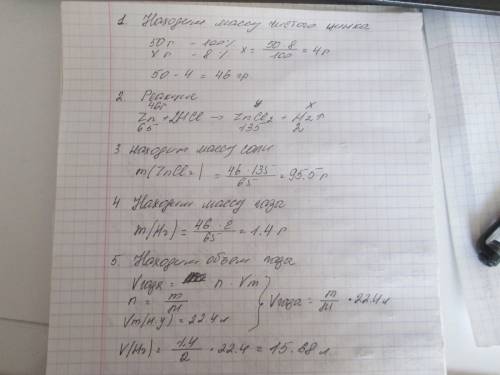 1. Находим массу чистого цинка
50 г - 100%
x г - 8% x = 50·8/100 = 4 г
50 - 4 = 46 гр
2. Реакция
46г y x
Zn + 2HCl → ZnCl2 + H2↑
65 135 2
3 находим массу соли
m(ZnCl2) = 46·135/65 = 95.5 г
4. Находим массу газа
m(H2) = 46·2/65 = 1.4 г
5. Находим объем газа
Vгаза = n · Vm
n = m/M
Vm(н.у) = 22.4 л
Vгаза = m/M · 22.4 л
V(H2) = 1.4/2 · 22.4 = 15.68 л